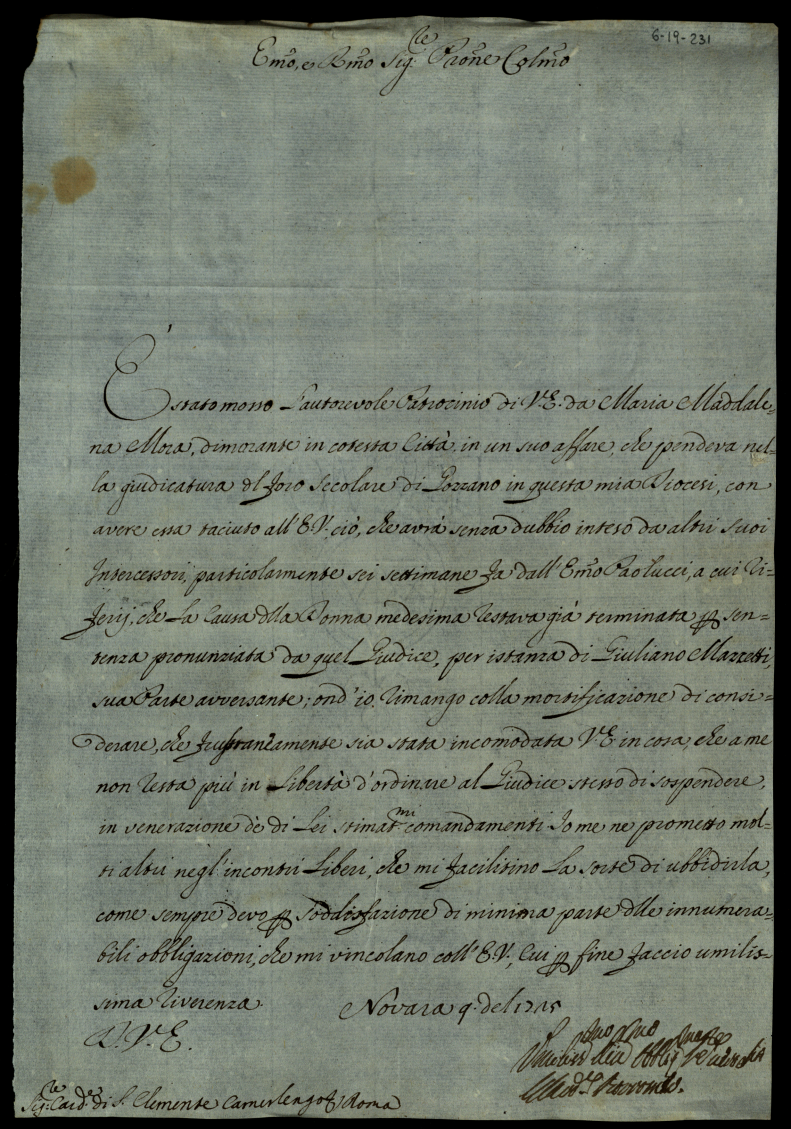 6-19-231
Emõ, e Rmõ Sig.re Prõne Colmõ
È stato mosso l'autorevole Patrocinio di V.E. da Maria Maddale=
na Mora, dimorante in cotesta Città, in un suo affare, che pendeva nel=
la giudicatura dl foro secolare di Gozzano in questa mia Diocesi, con
avere essa taciuto all'E.V. ciò, che avrà senza dubbio inteso da altri suoi
Intercessori, particolarmente sei settimane fa dall'Emõ Paolucci, a cui ri=
ferij, che la Causa dlla Donna medesima restava già terminata p sen=
tenza pronunziata da quel Giudice, per istanza di Giuliano Mazzetti,
sua Parte avversante; ond'io rimango colla mortificazione di consi=
derare, che frustraneamente sia stata incomodata V.E. in cosa, che a me
non resta più in libertà d'ordinare al Giudice stesso di sospendere,
in venerazione de di Lei stimat.mi comandamenti. Io me ne prometto mol=
ti altri negl'incontri liberi, che mi facilitino la sorte di ubbidirla,
come sempre devo p soddisfazione di minima parte dlle innumera=
bili obbligazioni, che mi vincolano coll'E.V., Cui p fine faccio umilis=
sima riverenza.
Novara 9. del 1715
D.V.E.
Sig.re Card.le di S. Clemente Camerlengo Roma